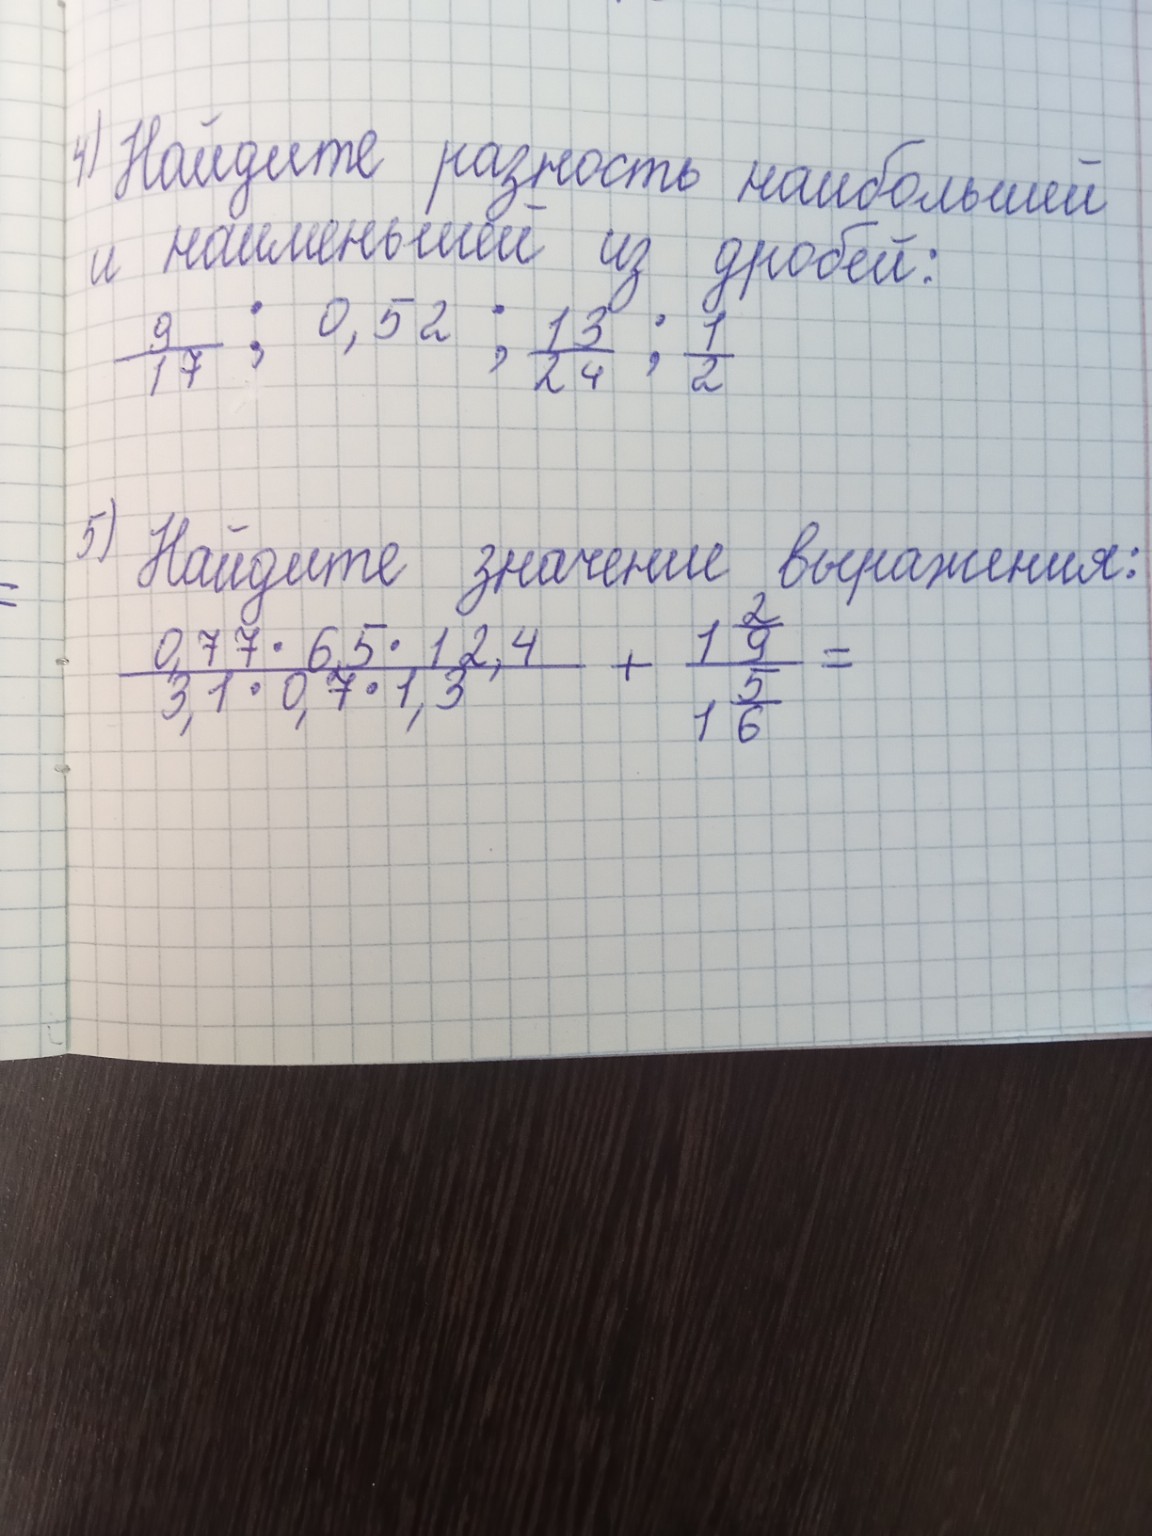 4) Найдите разность наибольшей
и наименьшей из дробей:
9/17 ; 0,52 ; 13/24 ; 1/2
5) Найдите значение выражения:
=
(0,77 · 6,5 · 12,4)/(3,1 · 0,7 · 1,3) + (1 2/9)/(1 5/6) =